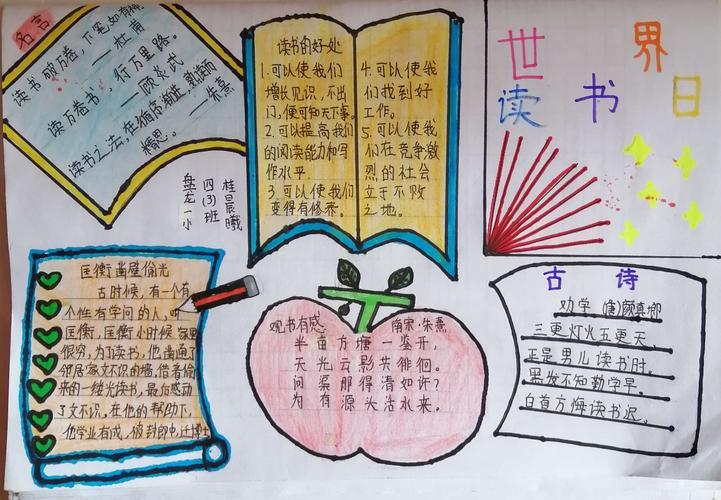 名言
读书破万卷,下笔如有神
——杜甫
读万卷书,行万里路。
——顾炎武
读书之法,在循序渐进,熟读而
精思。——朱熹
盘龙一小
四(3)班
桂晨曦
读书的好处
1.可以使我们
增长见识,不出
门,便可知天下事。
2.可以提高我们
的阅读能力和写
作水平.
3.可以使我们
变得有修养。
4.可以使我
们找到好
工作。
5.可以使我
们在竞争激
烈的社会
立于不败
之地。
世界
读书日
匡衡凿壁偷光
古时候,有一个有
个性有学问的人,叫
匡衡,匡衡小时候家里
很穷,为了读书,他凿通了
邻居家文不识的墙,借者偷
来的一缕光读书,最后感动
了文不识。在他的帮助下,
他学业有成,被封郎中,迁博士
观书有感 南宋·朱熹
半亩方塘一鉴开,
天光云影共徘徊。
问渠那得清如许?
为有源头活水来。
古诗
劝学 (唐)颜真卿
三更灯火五更天,
正是男儿读书时。
黑发不知勤学早,
白首方悔读书迟。